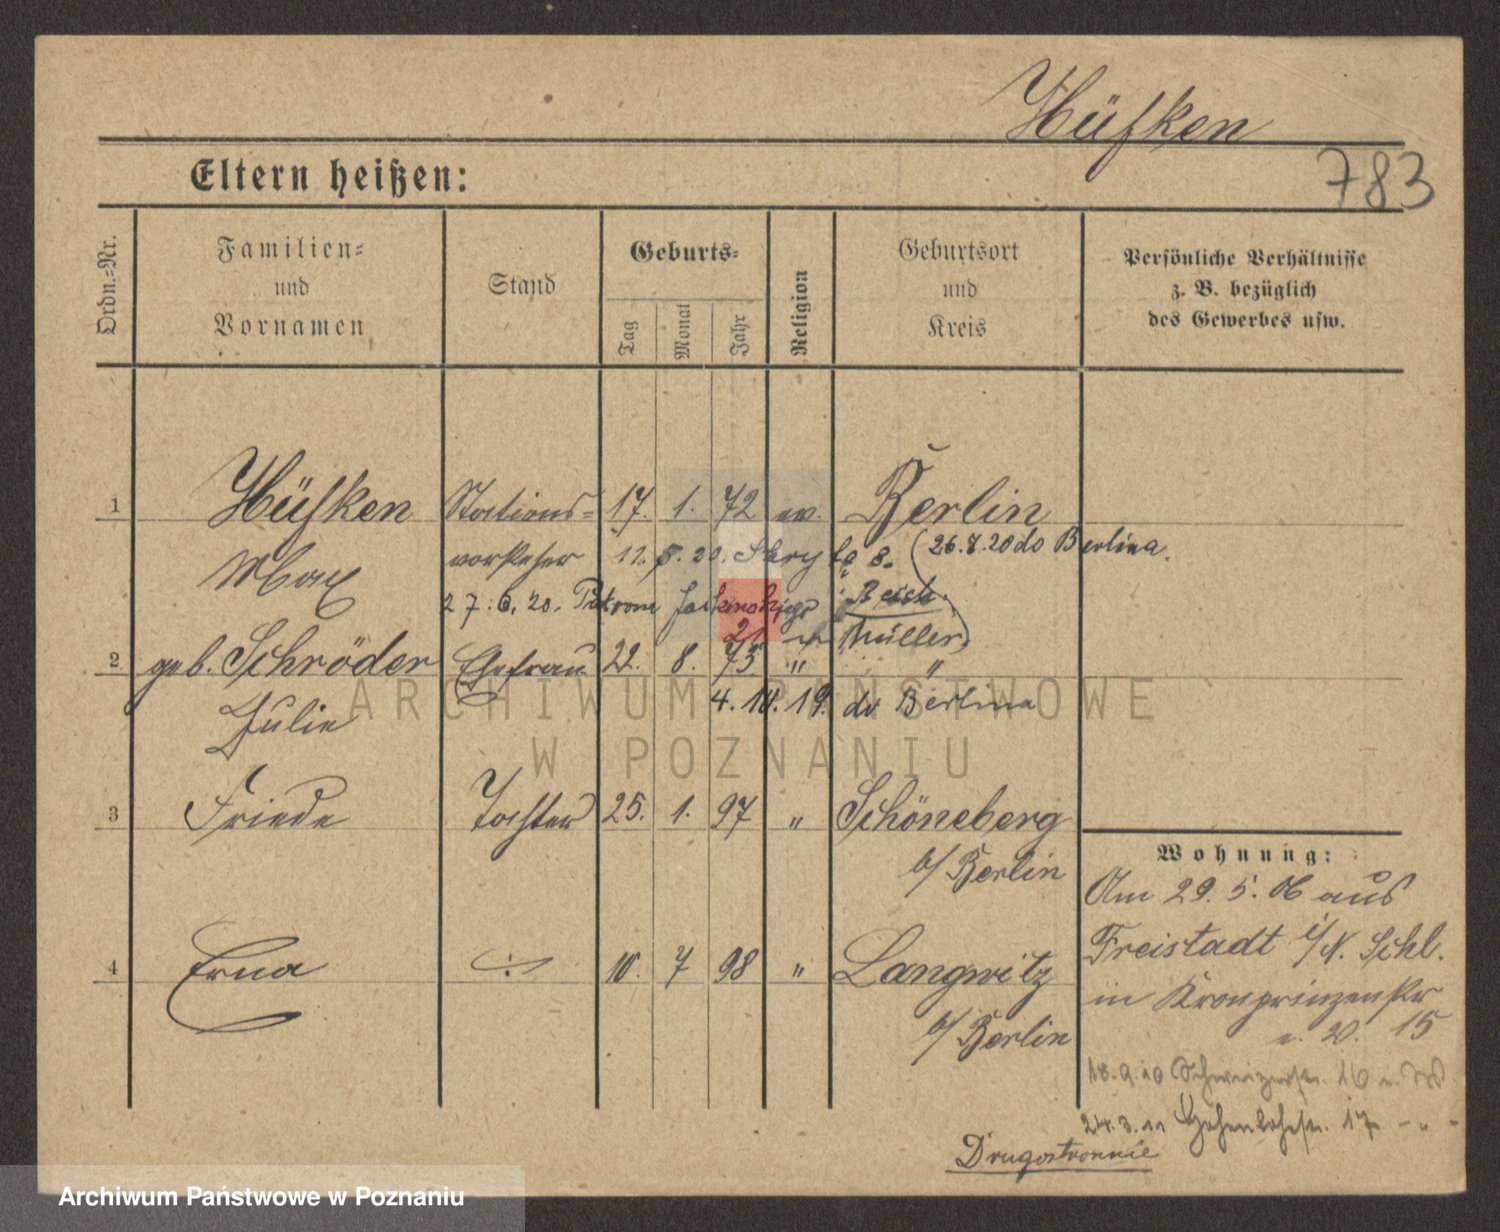 Hüfken
783
Eltern heißen:
Ordn.=Nr.
Familien=
und
Vornamen
Stand
Geburts=
Tag
Monat
Jahr
Religion
Geburtsort
und
Kreis
Persönliche Verhältnisse
z. B. bezüglich
des Gewerbes usw.
1 Hüfken Stations= 17. 1. 72 ev. Berlin
Max vorsteher 11. 20. 8. (26.8.20 do Berlina.
27. 6. 20. Patrona Jackowskiego
21 Müller)
2 geb. Schröder Ehefrau 22. 8. 75 " "
Julie 4. 10. 19. do Berlina
3 Friede Tochter 25. 1. 97 " Schöneberg
b/ Berlin
4 Erna 10. 7 98 " Langwitz
b/ Berlin
Wohnung:
Am 29. 5. 06 aus
Freistadt i/N. Schl.
in Kronprinzenstr
15
18.9.10 Schweizerstr. 16
24.3.11 Hohenlohestr. 17
Drugostronnie
ARCHIWUM PAŃSTWOWE
W POZNANIU
Archiwum Państwowe w Poznaniu